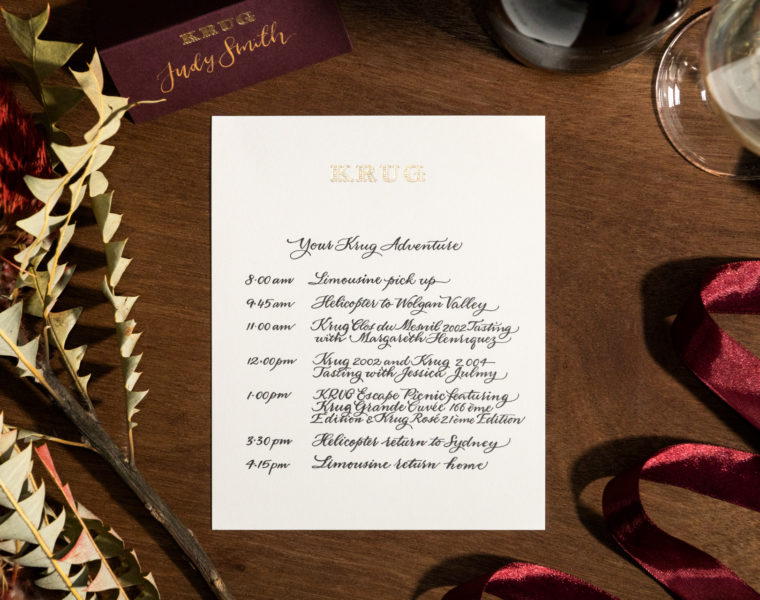 KRUG
Judy Smith
KRUG
Your Krug Adventure
8.00 am Limousine pick up
9.45 am Helicopter to Wolgan Valley
11.00 am Krug Clos du Mesnil 2002 Tasting
with Margareth Henriquez
12.00pm Krug 2002 and Krug 2004
Tasting with Jessica Julmy
1.00pm KRUG Escape Picnic featuring
Krug Grande Cuvée 166 ème
Edition & Krug Rosé 21ème Edition
3.30 pm Helicopter return to Sydney
4.15pm Limousine return home